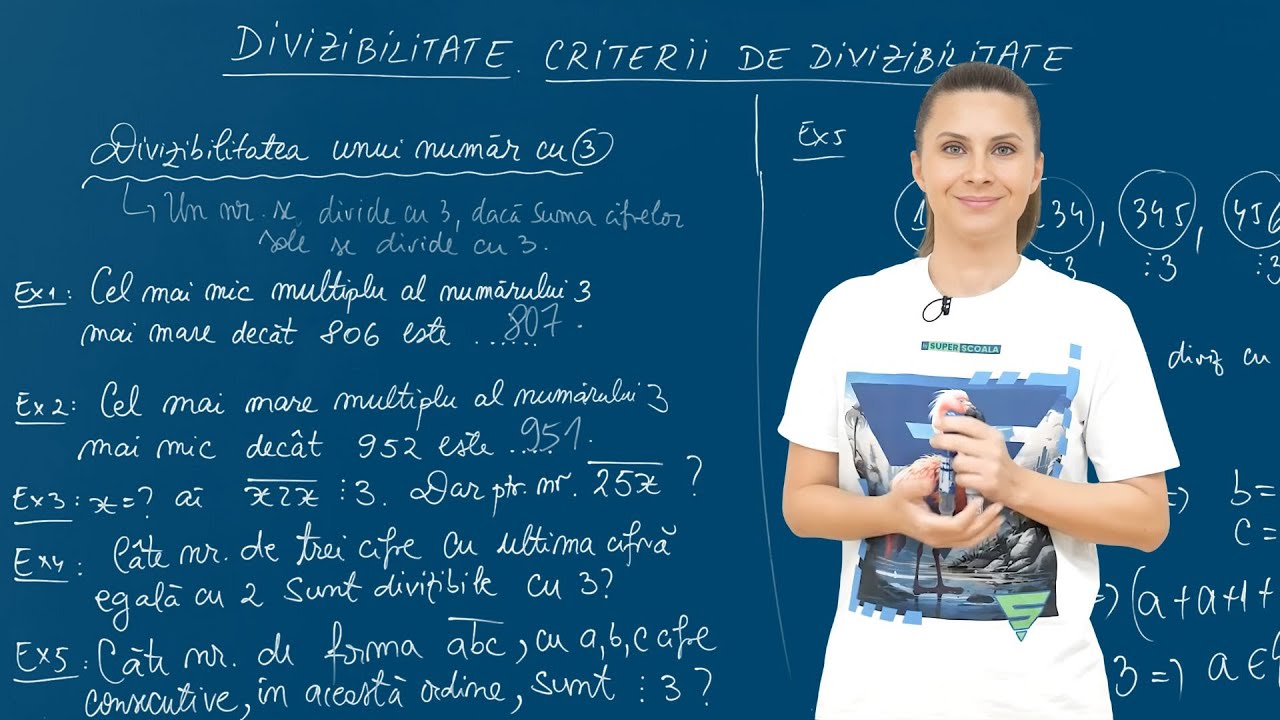 DIVIZIBILITATE. CRITERII DE DIVIZIBILITATE
Divizibilitatea unui număr cu 3
Un nr. se divide cu 3, dacă suma cifrelor
sale se divide cu 3.
Ex1: Cel mai mic multiplu al numărului 3
mai mare decât 806 este ...807.
Ex2: Cel mai mare multiplu al numărului 3
mai mic decât 952 este ...951.
Ex3: x=? aî x2x ⋮3. Dar ptr. nr. 25x ?
Ex4: Câte nr. de trei cifre cu ultima cifră
egală cu 2 sunt divizibile cu 3?
Ex5: Câte nr. de forma abc, cu a,b,c cifre
consecutive, în această ordine, sunt ⋮3?
Ex5
1 34, 345, 456
⋮3 ⋮3 ⋮3
diviz cu
=) b=
c=
=) (a+a+1+
3 =) a∈
SUPER ȘCOALA
S